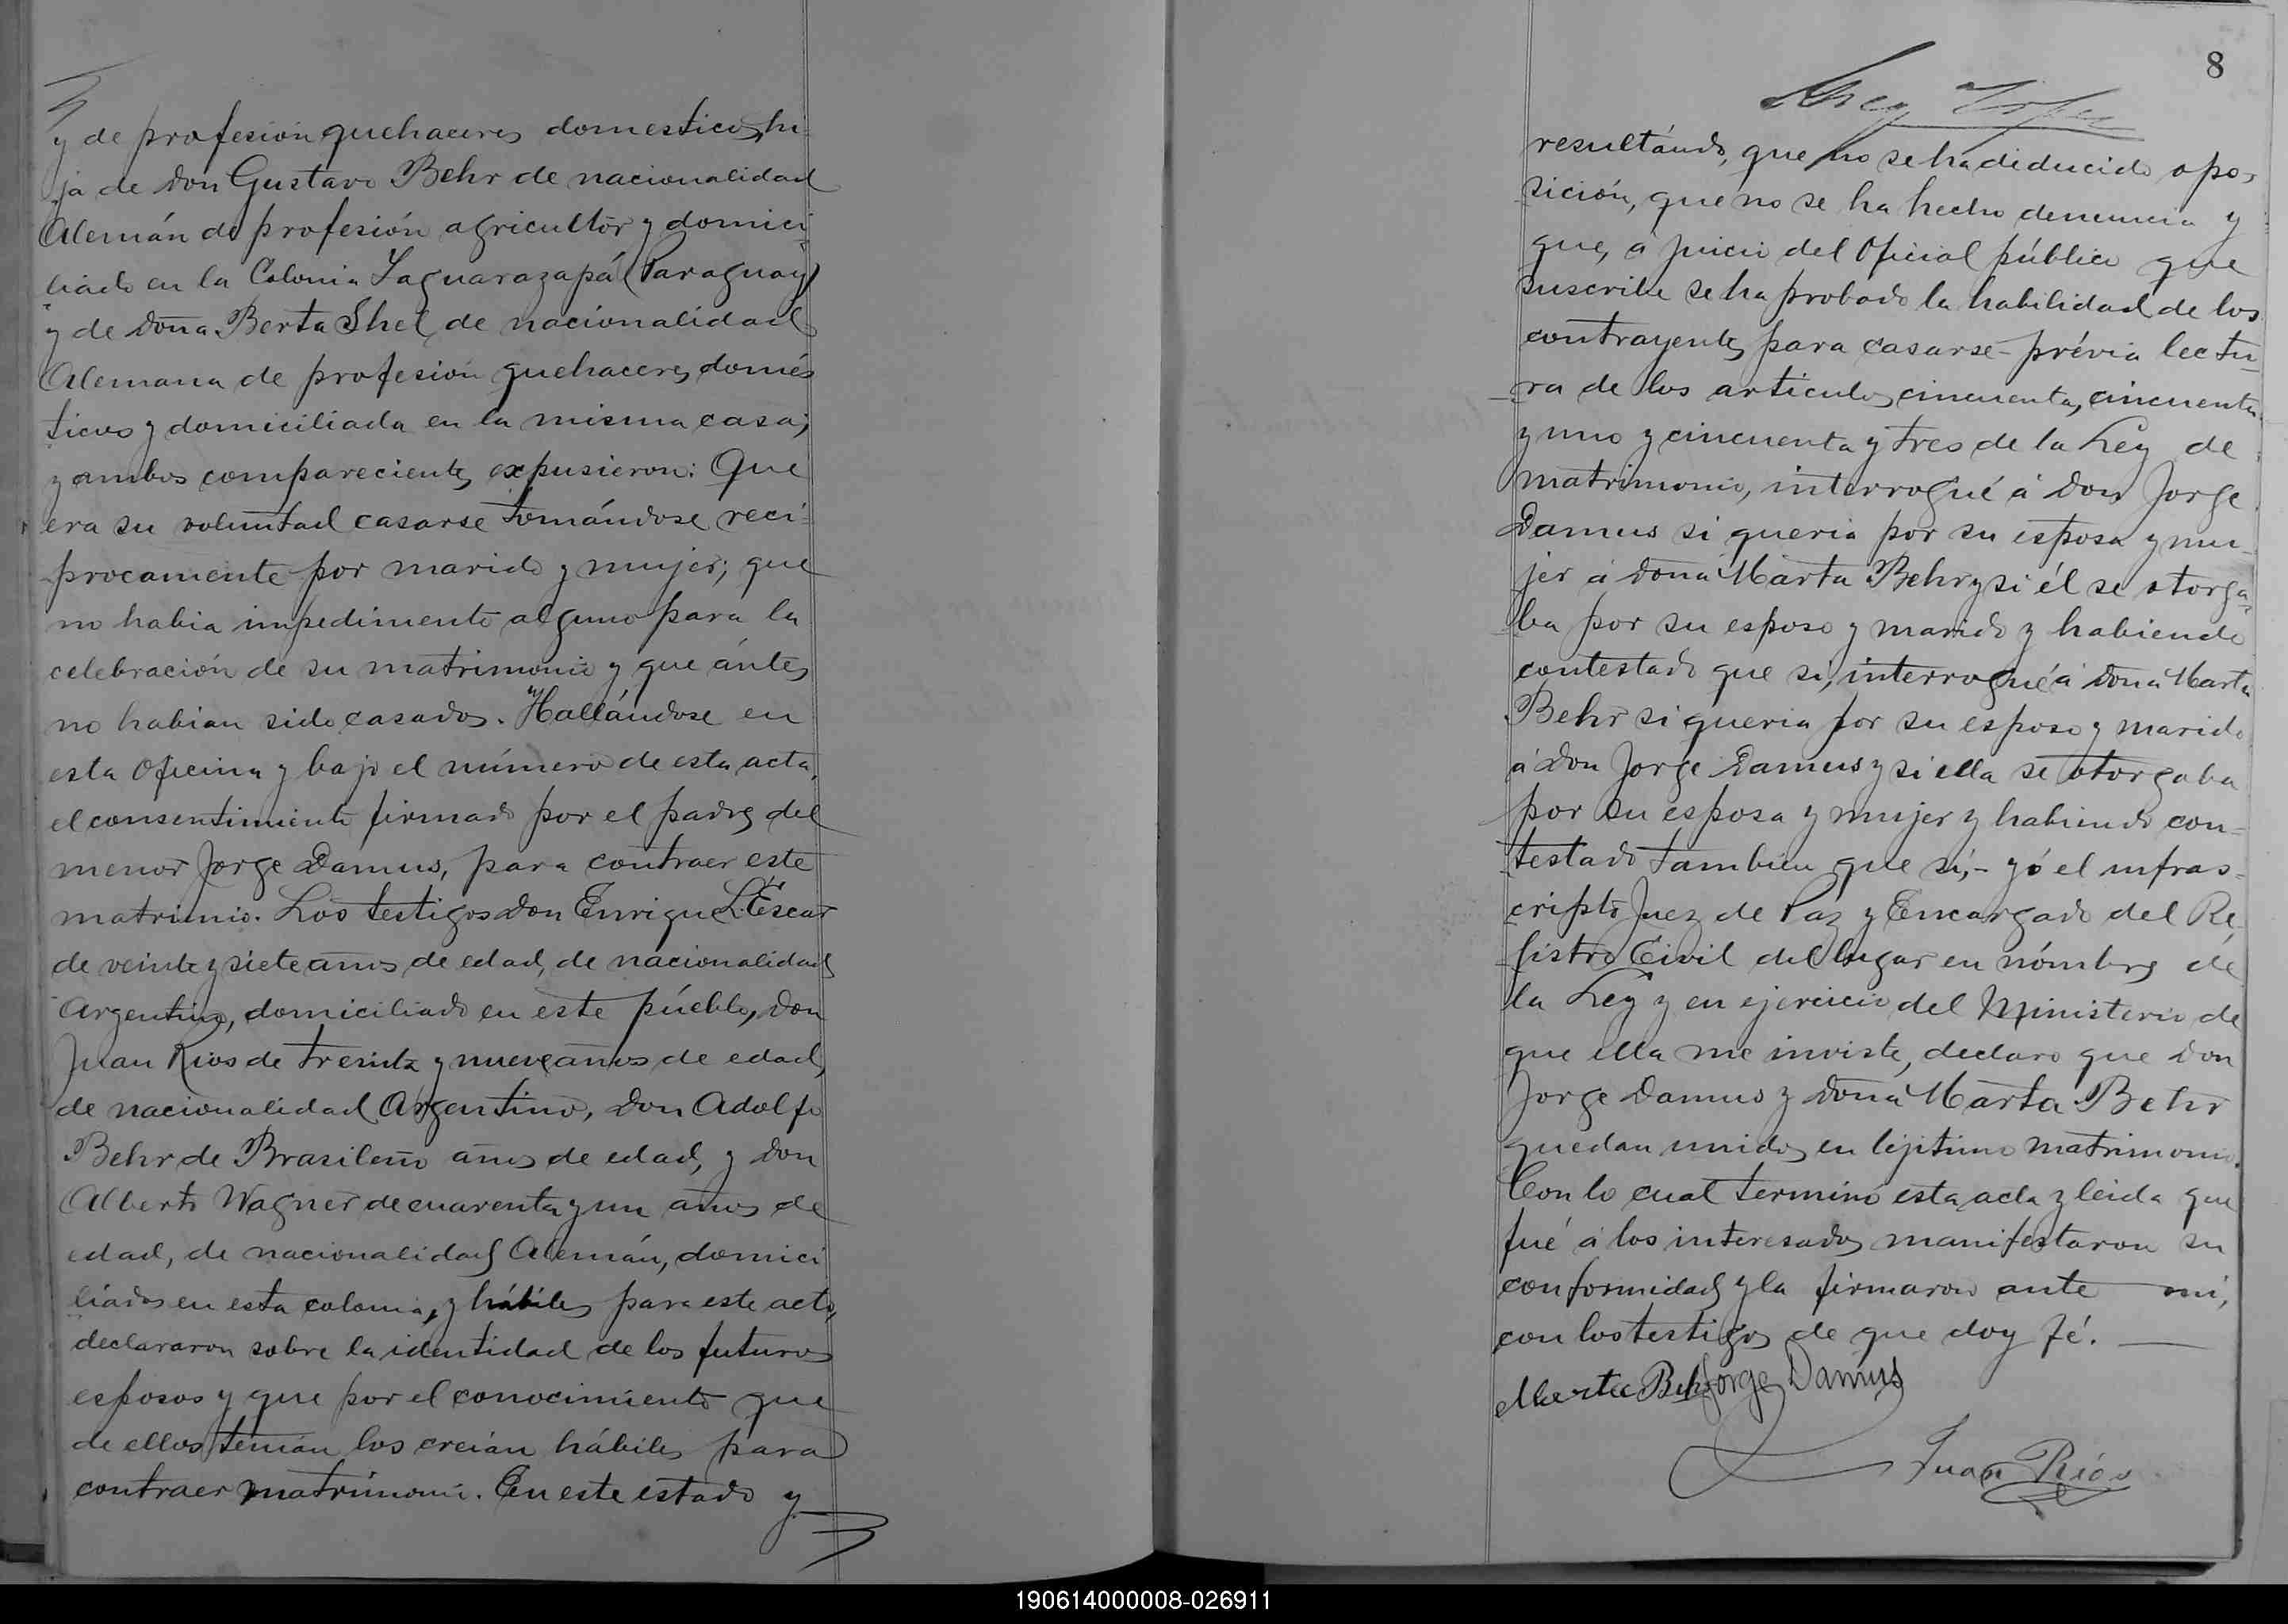 y de profesión quehaceres domesticos, hi-
ja de Don Gustavo Behr de nacionalidad
Alemán de profesión agricultor y domici-
liado en la Colonia Yaguarazapá (Paraguay)
y de Doña Berta Shel, de nacionalidad
Alemana de profesión quehaceres domés
ticos y domiciliada en la misma casa;
y ambos comparecientes expusieron: Que
era su voluntad casarse tomándose reci-
procamente por marido y mujer; que
no habia impedimento alguno para la
celebración de su matrimonio y que ántes
no habian sido casados. "Hallándose en
esta Oficina y bajo el número de esta acta,
el consentimiento firmado por el padre del
menor Jorge Damus, para contraer este
matrimonio. Los testigos Don Enrique L. Escar
de veinte y siete años de edad, de nacionalidad
Argentino, domiciliado en este pueblo, Don
Juan Rios de treinta y nueve años de edad,
de nacionalidad Argentino, Don Adolfo
Behr de Brasileño años de edad, y Don
Alberto Wagner de cuarenta y un años de
edad, de nacionalidad Alemán, domici
liados en esta colonia, y hábiles para este acto,
declararon sobre la identidad de los futuros
esposos y que por el conocimiento que
de ellos tenián los creián hábiles para
contraer matrimonio. En este estado y
8
resultándo, que no se ha diducido opo-
sición, que no se ha hecho denuncia y
que, á juicio del Oficial público que
suscribe se ha probado la habilidad de los
contrayentes para casarse - prévia lectu-
ra de los articulos cincuenta, cincuenta
y uno y cincuenta y tres de la Ley de
matrimonio, interrogué á Don Jorge
Damus si queria por su esposa y mu-
jer á Doña Marta Behr y si él se otorga-
ba por su esposo y marido y habiendo
contestado que si, interrogué á Doña Marta
Behr si queria por su esposo y marido
á Don Jorge Damus y si ella se otorgaba
por su esposa y mujer y habiendo con-
testado tambien que si, - yó el infras-
cripto Juez de Paz y Encargado del Re-
gistro Civil del lugar en nómbre de
la Ley y en ejercicio del Ministerio de
que ella me inviste, declaro que Don
Jorge Damus y Doña Marta Behr
quedan unidos en lejitimo matrimonio.
Con lo cual terminó esta acta y leida que
fué á los interesados manifestaron su
conformidad y la firmaron ante mi,
con los testigos de que doy fé.
Marta Behr Jorge Damus
Juan Ríos
190614000008-026911